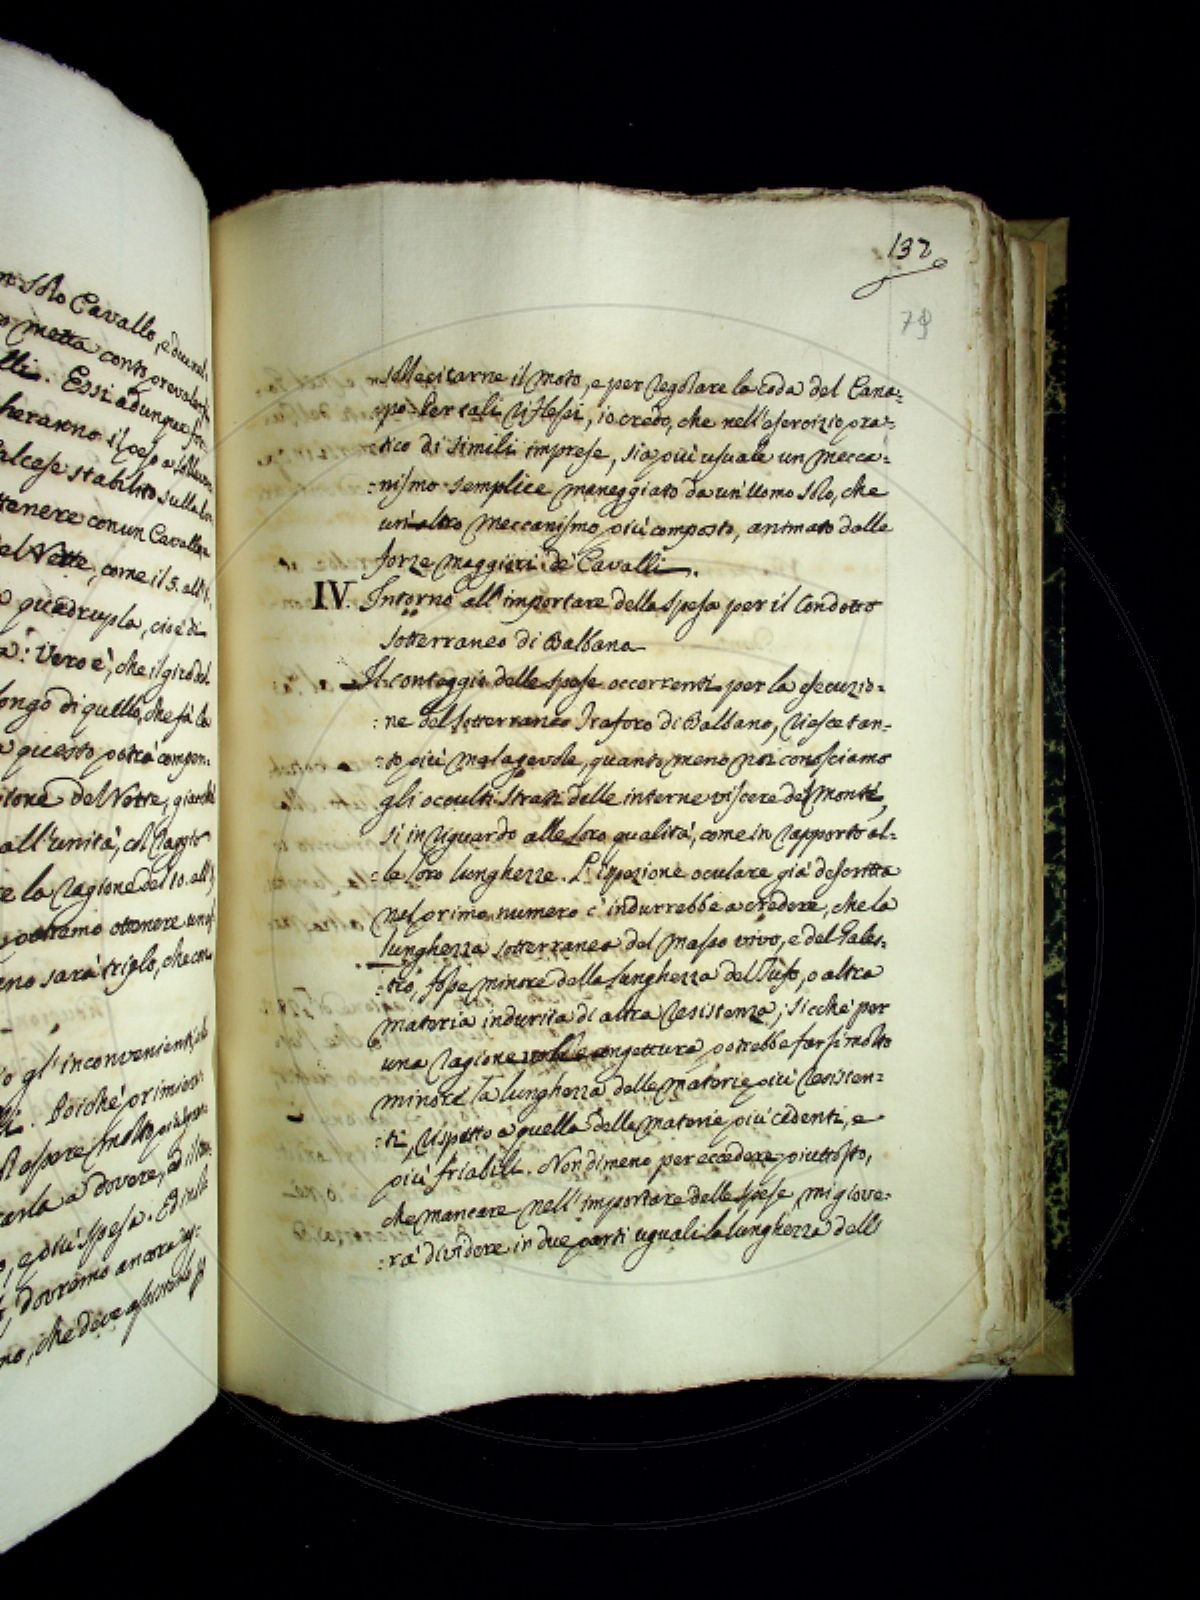 n Solo Cavallo, e due nel
metta conto prevalersi
lli. Essi adunque for
heranno il peso a sollevar
alcese stabilito sulla
ttenere con un Cavallo
el Vette, come il 5. all'1.
quadrupla, cioè di
a: Vero è, che il giro del
ongo di quello, che fà la
a questo potrà compen:
zione del Vette, giacchè
all'unità, col raggio
re la ragione del 10. all'
potremo ottenere un
eno sarà triplo, che con
o gl'inconvenienti,
Poichè primiera:
essere molto più
tarla a dovere, ed il
o, e più spesa. Di più
dovremo ancora
no, che deve assistendo
132
79
sollecitarne il moto, e per regolare la coda del Cana:
:po. Per tali riflessi, io credo, che nell'esercizio pra:
:tico di simili imprese, sia più usuale un mecca:
:nismo semplice maneggiato da un'Uomo solo, che
un'altro meccanismo più composto, animato dalle
forze maggiori de' Cavalli.
IV. Intorno all'importare della spesa per il Condotto
sotterraneo di Balbano
Il conteggio delle spese occorrenti per la esecuzio:
:ne del sotterraneo Traforo di Balbano, riesce tan:
:to più malagevole, quanto meno noi conosciamo
gli occulti strati delle interne viscere de' monti,
sì in riguardo alle loro qualità, come in rapporto al:
:le loro lunghezze. L'ispezione oculare già descritta
nel primo numero c'indurrebbe a credere, che la
lunghezza sotterranea del masso vivo, e del Gales:
:tro, fosse minore della lunghezza del Tufo, o altra
materia indurita di altra resistenza; sicchè per
una ragionevole congettura potrebbe farsi molto
minore la lunghezza delle materie più resisten:
:ti, rispetto a quella delle materie più cedenti, e
più friabili. Nondimeno per eccedere piuttosto,
che mancare nell'importare delle spese, mi giove:
:rà dividere in due parti uguali la lunghezza dell